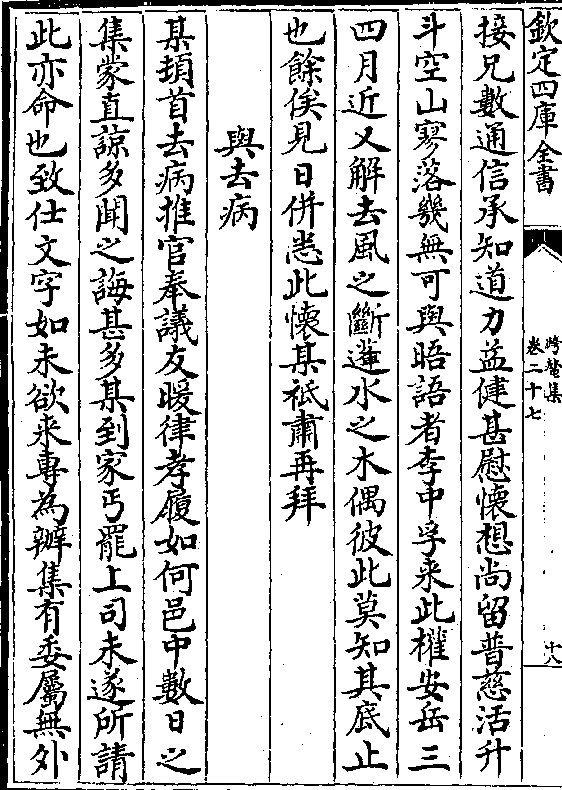 欽定四庫全書
跨鼇集
卷二十七
十八
接兄數通信承知道力益健甚慰懷想尚留普慈活升
斗空山寥落幾無可與晤語者李中孚来此權安岳三
四月近又解去風之斷蓬水之木偶彼此莫知其底止
也餘俟見日併悉此懷某祗肅再拜
與去病
某頓首去病推官奉議友暖律孝履如何邑中數日之
集蒙直諒多聞之誨甚多某到家丐罷上司未遂所請
此亦命也致仕文字如未欲来專為辦集有委屬無外